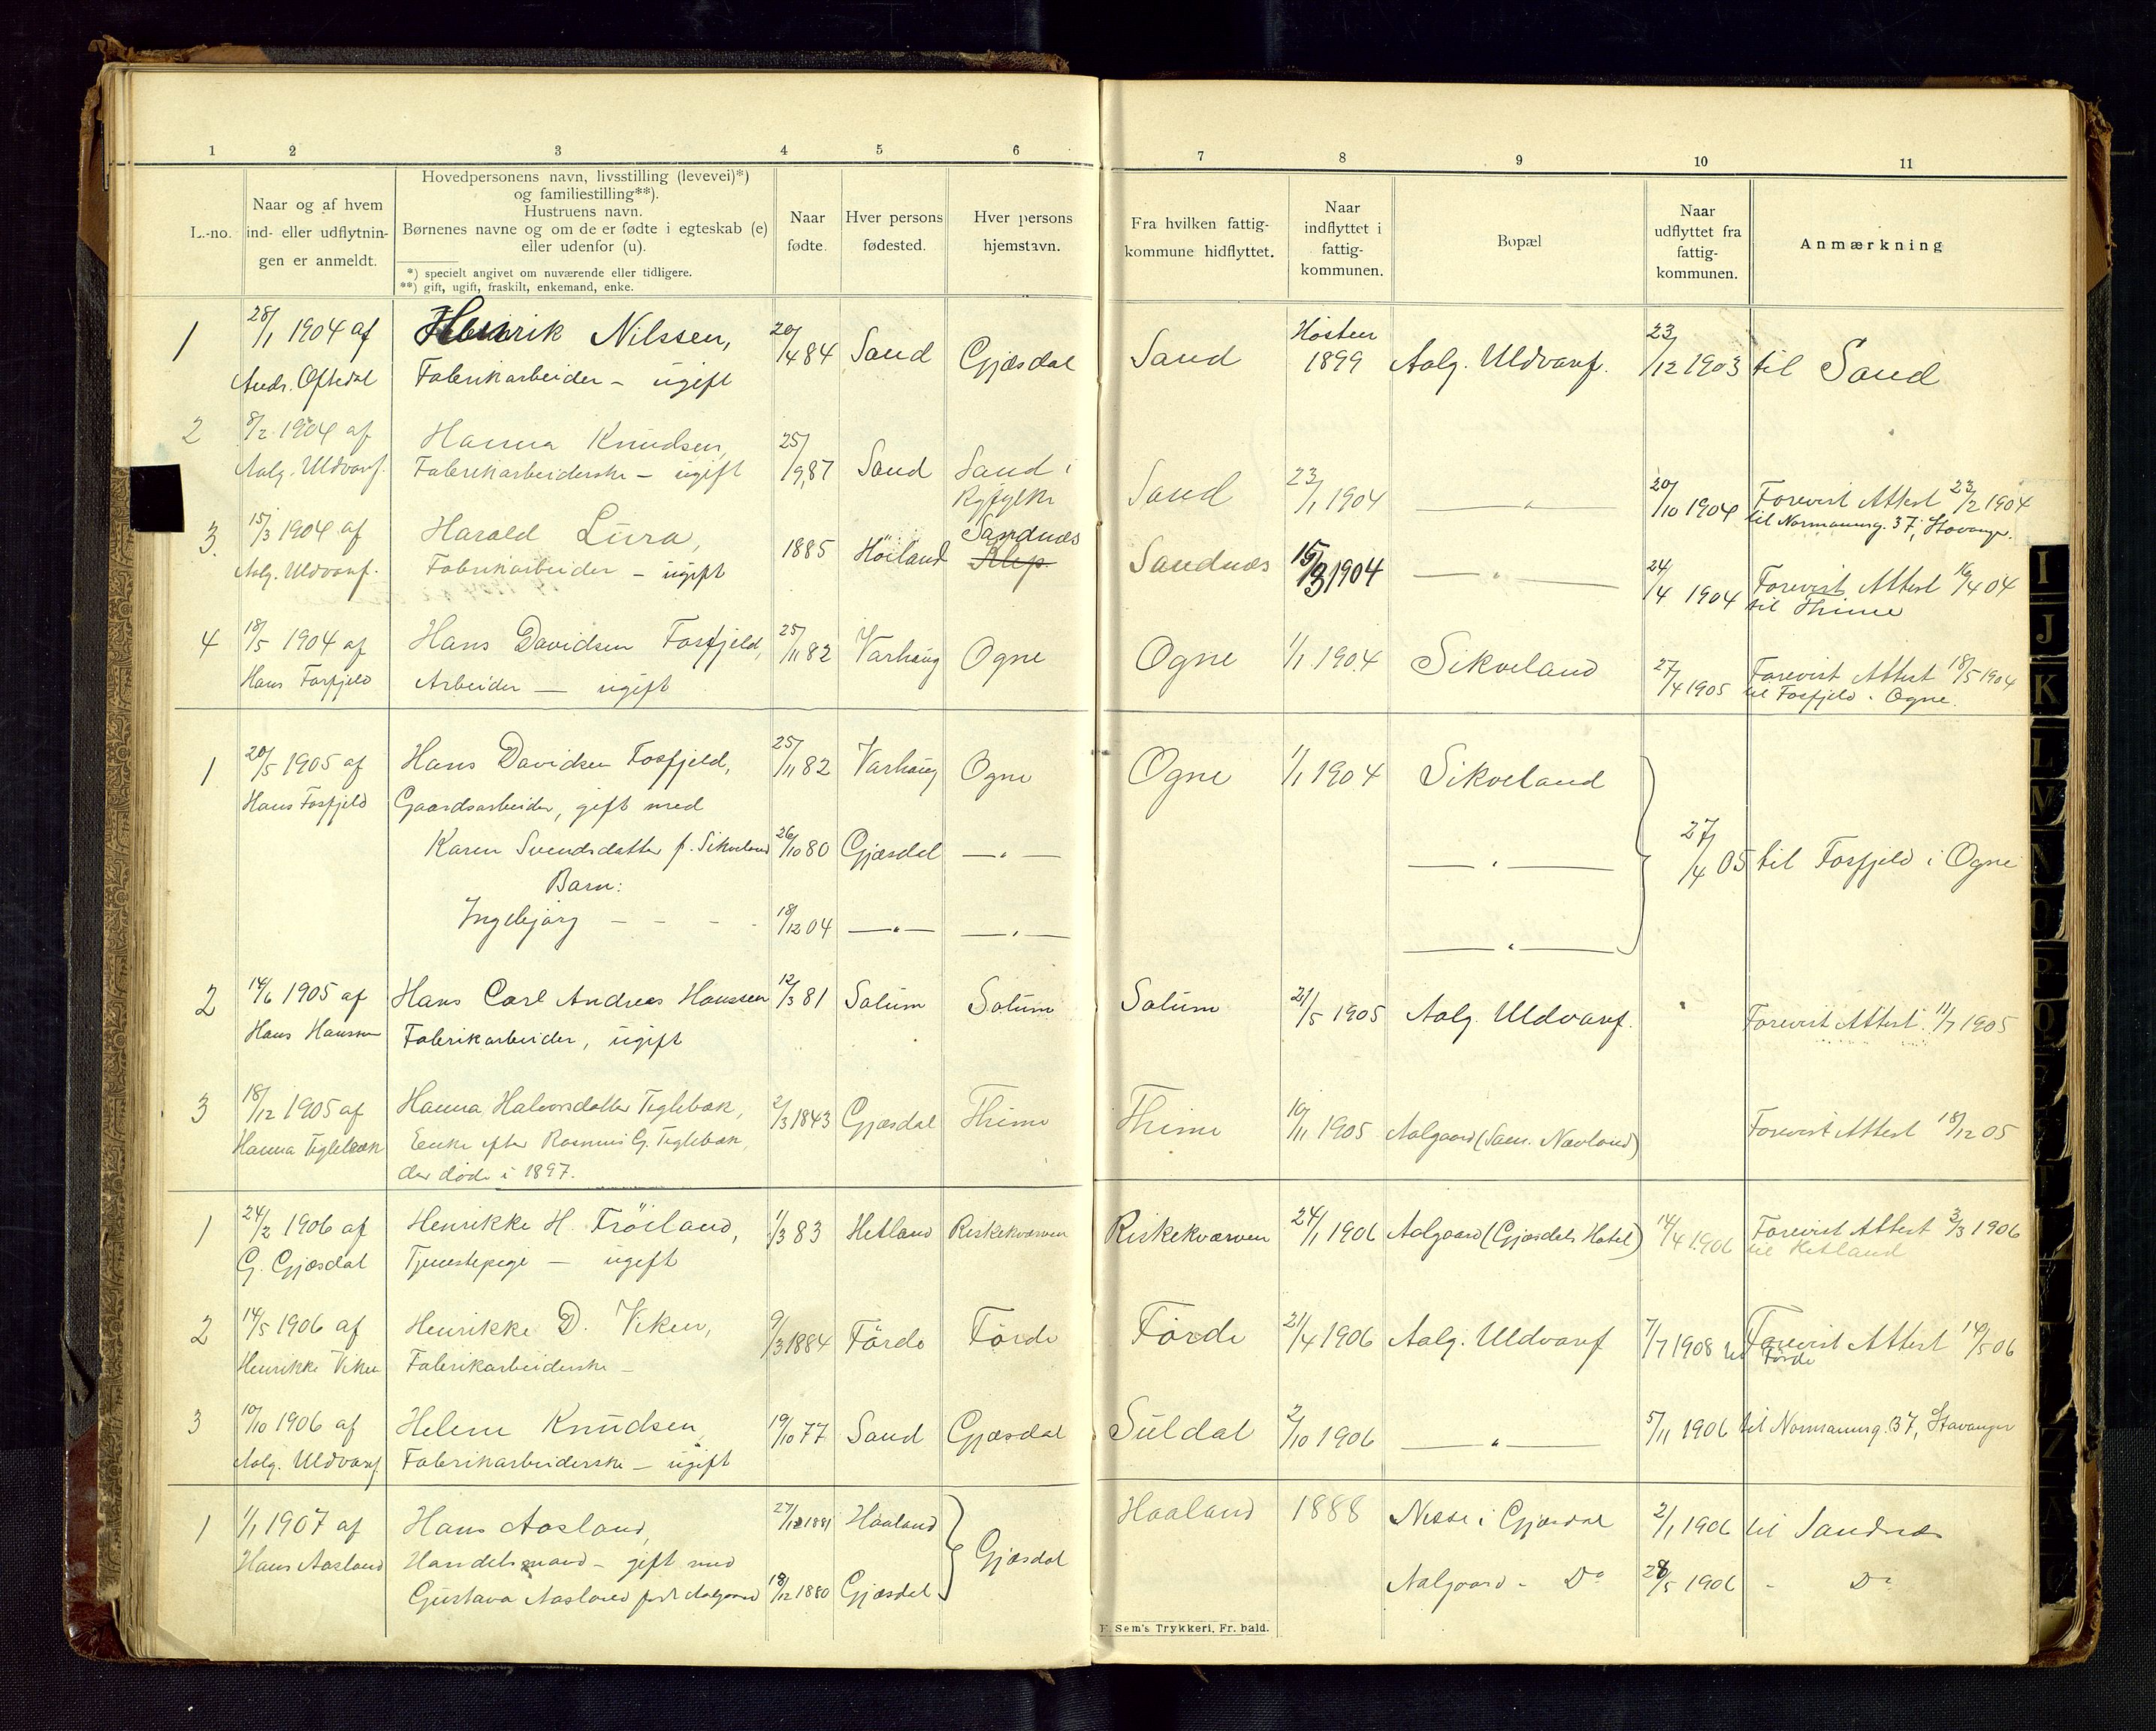 1 2 3 4 5 6 7 8 9 10 11
L.-no.
Naar og af hvem
ind- eller udflytnin-
gen er anmeldt.
Hovedpersonens navn, livsstilling (levevei)*)
og familiestilling**).
Hustruens navn.
Børnenes navne og om de er fødte i egteskab (e)
eller udenfor (u).
*) specielt angivet om nuværende eller tidligere.
**) gift, ugift, fraskilt, enkemand, enke.
Naar
fødte.
Hver persons
fødested.
Hver persons
hjemstavn.
Fra hvilken fattig-
kommune hidflyttet.
Naar
indflyttet i
fattig-
kommunen.
Bopæl
Naar
udflyttet fra
fattig-
kommunen.
Anmærkning
1 28/1 1904 af Henrik Nilssen, 20/4 84 Sand Gjæsdal Sand Høsten 1899 Aalg. Uldvarf. 23/12 1903 til Sand
Andr. Oftedal Fabrikarbeider – ugift
2 8/2 1904 af Hanna Knudsen, 25/9 87 Sand Sand i Sand 23/1 1904 — " — 20/10 1904 Forevist Attest 23/2 1904
Aalg. Uldvarf. Fabrikarbeiderske – ugift Ryfylke til Normannsg. 37, Stavanger.
3. 15/3 1904 af Harald Lura, 1885 Höiland Sandnæs Klep Sandnæs 15/3 1904 — " — 24/4 1904 Forevist Attest 16/4 04
Aalg. Uldvarf. Fabrikarbeider – ugift til Thime
4 18/5 1904 af Hans Davidsen Fosfjeld, 25/11 82 Varhaug Ogne Ogne 1/1 1904 Sikveland 27/4 1905 Forevist Attest 18/5 1904
Hans Fosfjeld Arbeider — ugift til Fosfjeld i Ogne.
1 20/5 1905 af Hans Davidsen Fosfjeld, 25/11 82 Varhaug Ogne Ogne 1/1 1904 Sikveland
Hans Fosfjeld Gaardsarbeider, gift med
Karen Svendsdatter f. Sikveland 26/10 80 Gjæsdal — " — — " — 27/4 05 til Fosfjeld i Ogne
Barn:
Ingebjørg - - - 18/12 04 — " — — " — — " —
2 14/6 1905 af Hans Carl Andreas Hanssen 12/3 81 Solum Solum Solum 21/5 1905 Aalg. Uldvarf. " Forevist Attest 11/7 1905
Hans Hanssen Fabrikarbeider, ugift
3 18/12 1905 af Hanna Halvorsdatter Teglebæk, 2/3 1843 Gjæsdal Thime Thime 10/11 1905 Aalgaard (Sam. Nævland) Forevist Attest 18/12 05
Hanna Teglebæk Enke efter Rasmus G. Teglebæk,
der døde i 1897.
1 24/2 1906 af Henrikke H. Fröiland, 1/3 83 Hetland Riskekværven Riskekværven 24/1 1906 Aalgaard (Gjæsdals Hotel) 14/4 1906 Forevist Attest 3/3 1906
G. Gjæsdal Tjenestepige — ugift til Hetland
2 14/5 1906 af Henrikke D. Viken, 9/3 1884 Förde Förde Förde 21/4 1906 Aalg. Uldvarf 7/7 1908 til Forevist Attest 14/5 06
Henrikke Viken Fabrikarbeiderske – Förde
3 10/10 1906 af Helene Knudsen, 19/10 77 Sand Gjæsdal Suldal 2/10 1906 — " — 5/11 1906 til Normannsg. 37, Stavanger
Aalg. Uldvarf. Fabrikarbeiderske – ugift
1 1/1 1907 af Hans Aasland, 27/12 1881 Haaland Gjæsdal Haaland 1888 Næsse i Gjæsdal 2/1 1906 til Sandnæs
Hans Aasland Handelsmand – gift med
Gustava Aasland født Aalgaard 18/12 1880 Gjæsdal Aalgaard - Do 28/5 1906 - Do
F. Sem's Trykkeri, Fr. hald.
I
J
K
L
M
N
O
P